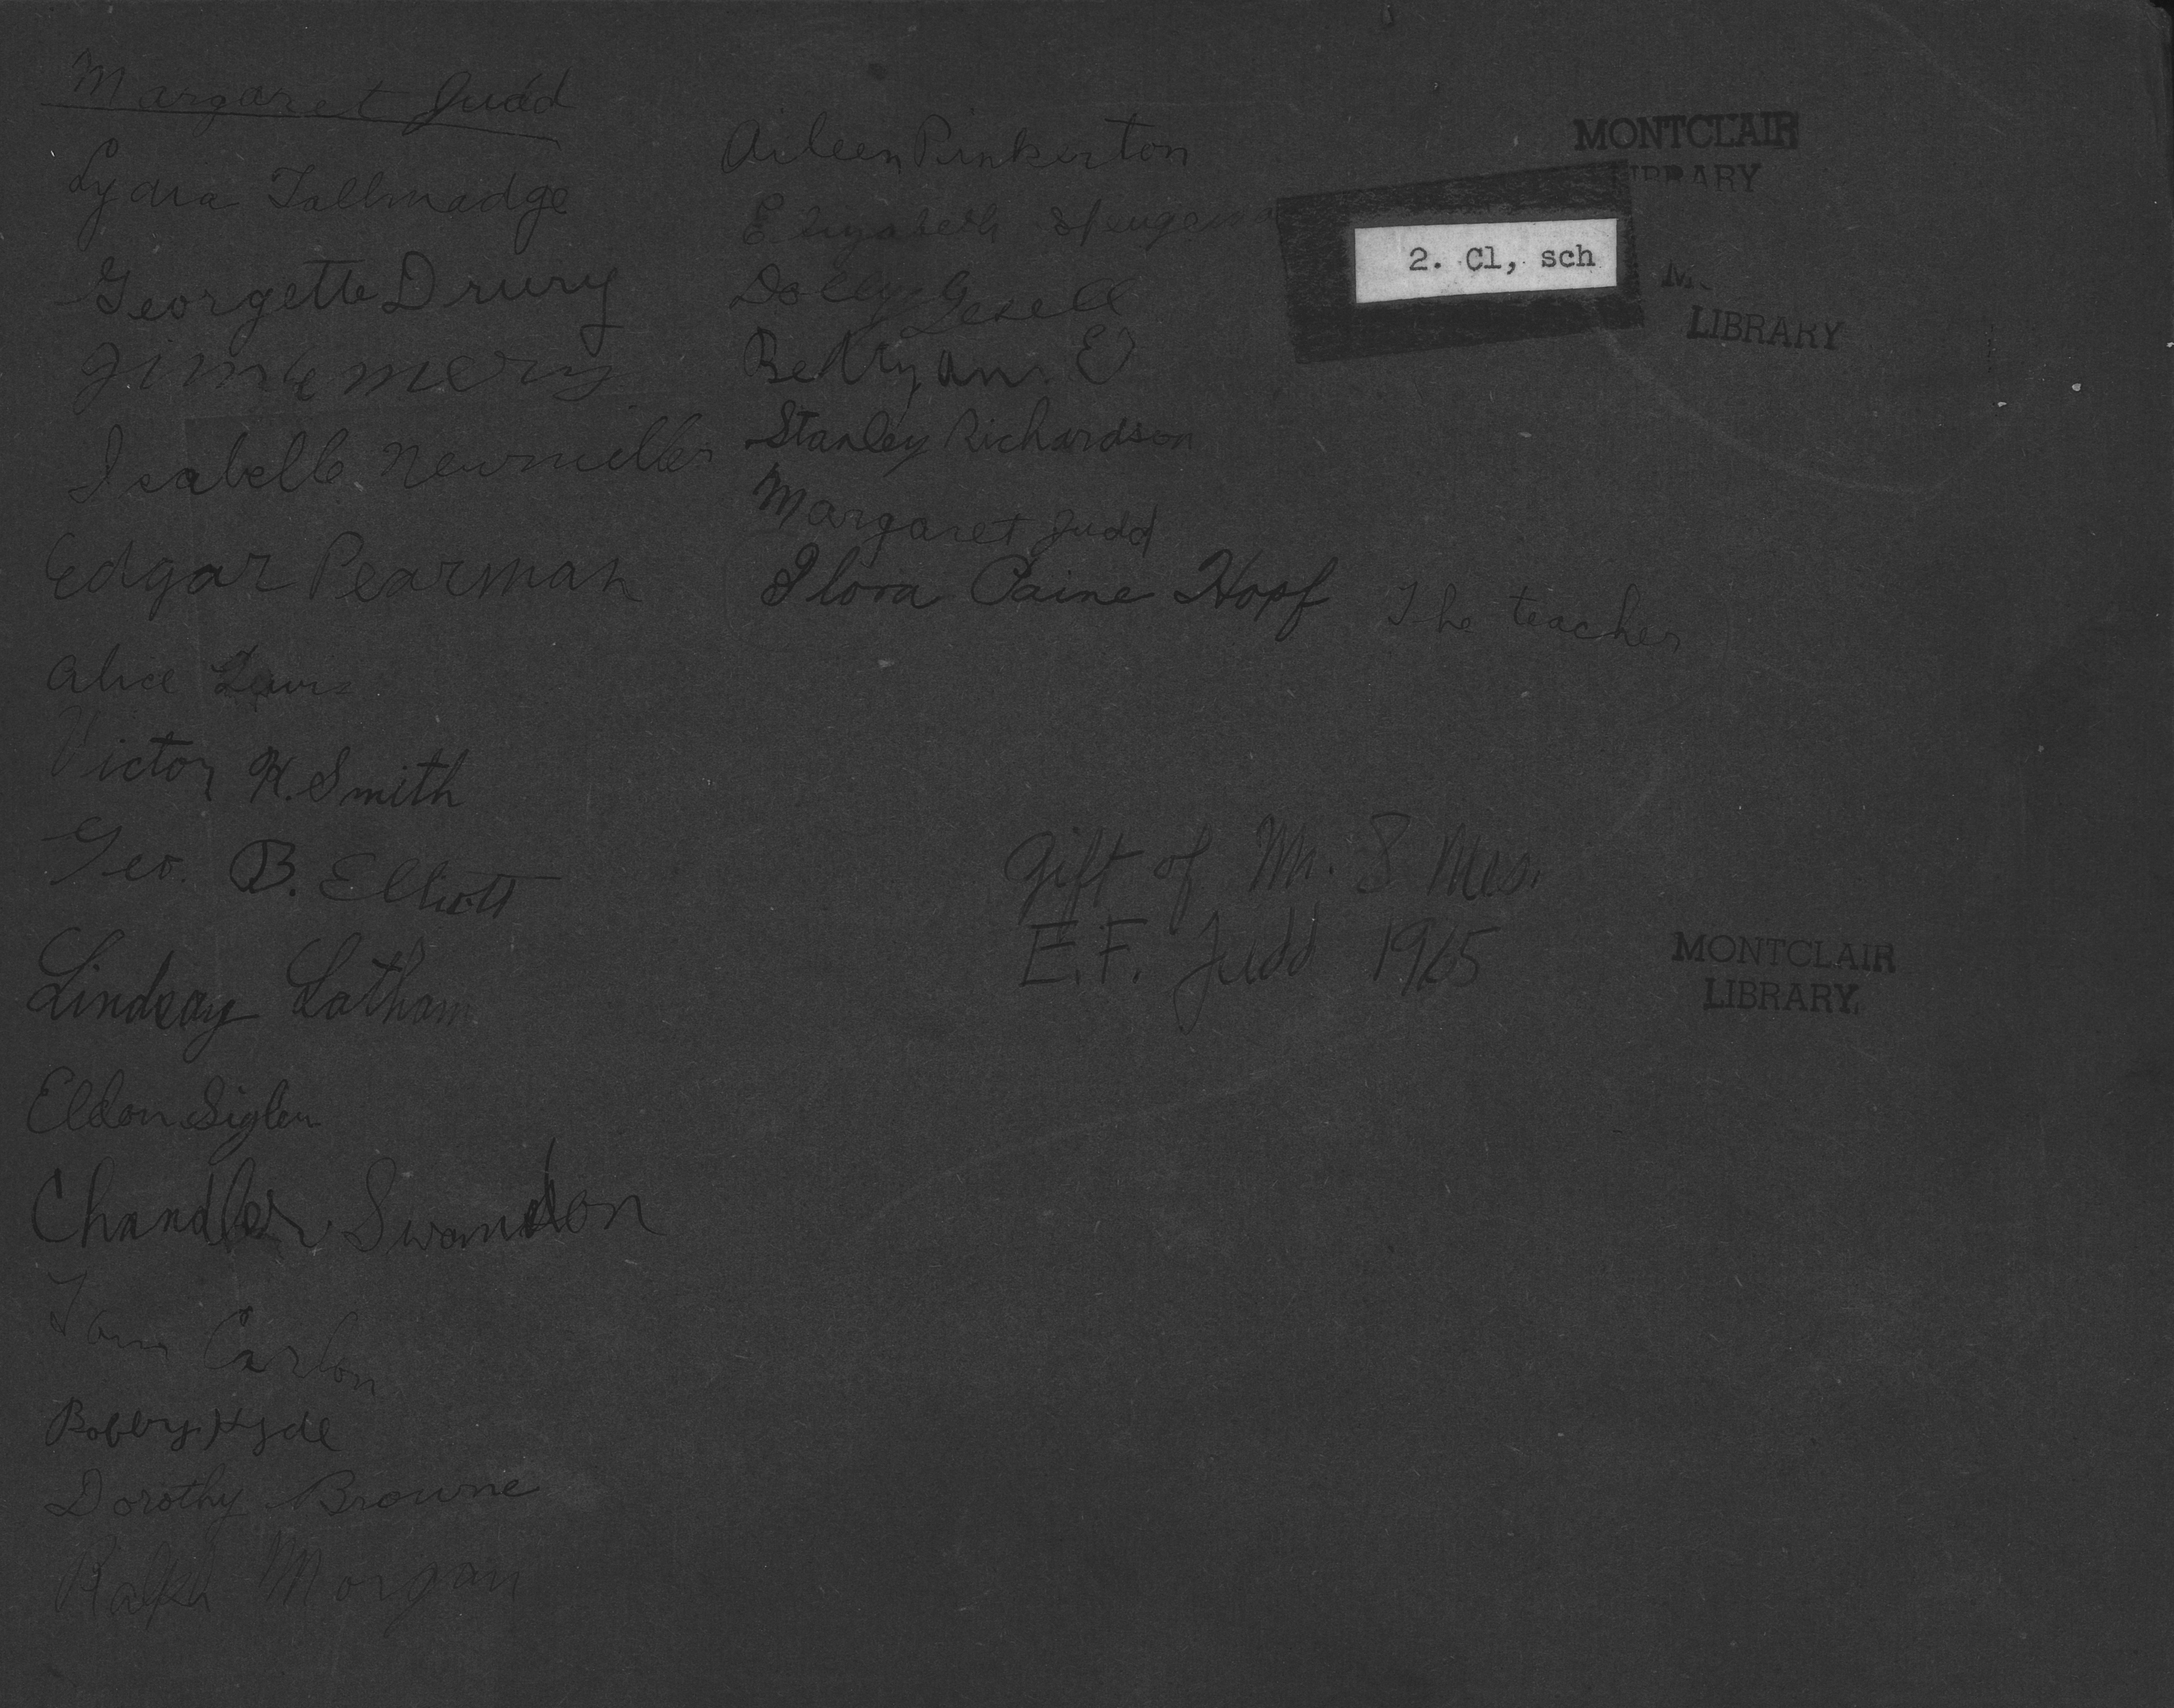 Margaret Judd
Lydia Tallmadge
Georgette Drury
Jim Emery
Isabelle Newmiller
Edgar Pearman
Alice Lewis
Victor H. Smith
Geo. B. Elliott
Lindsay Latham
Eldon Sigler
Chandler
Tom Carlon
Bobby Hyde
Dorothy Browne
Ralph Morgan
Aileen Pinkerton
Elizabeth
Dolly Gesell
Betty Ann E
Stanley Richardson
Margaret Judd
Flora Paine Hopf The teacher
MONTCLAIR
LIBRARY
2. Cl, sch
LIBRARY
Gift of Mr. & Mrs.
E.F. Judd 1965
MONTCLAIR
LIBRARY